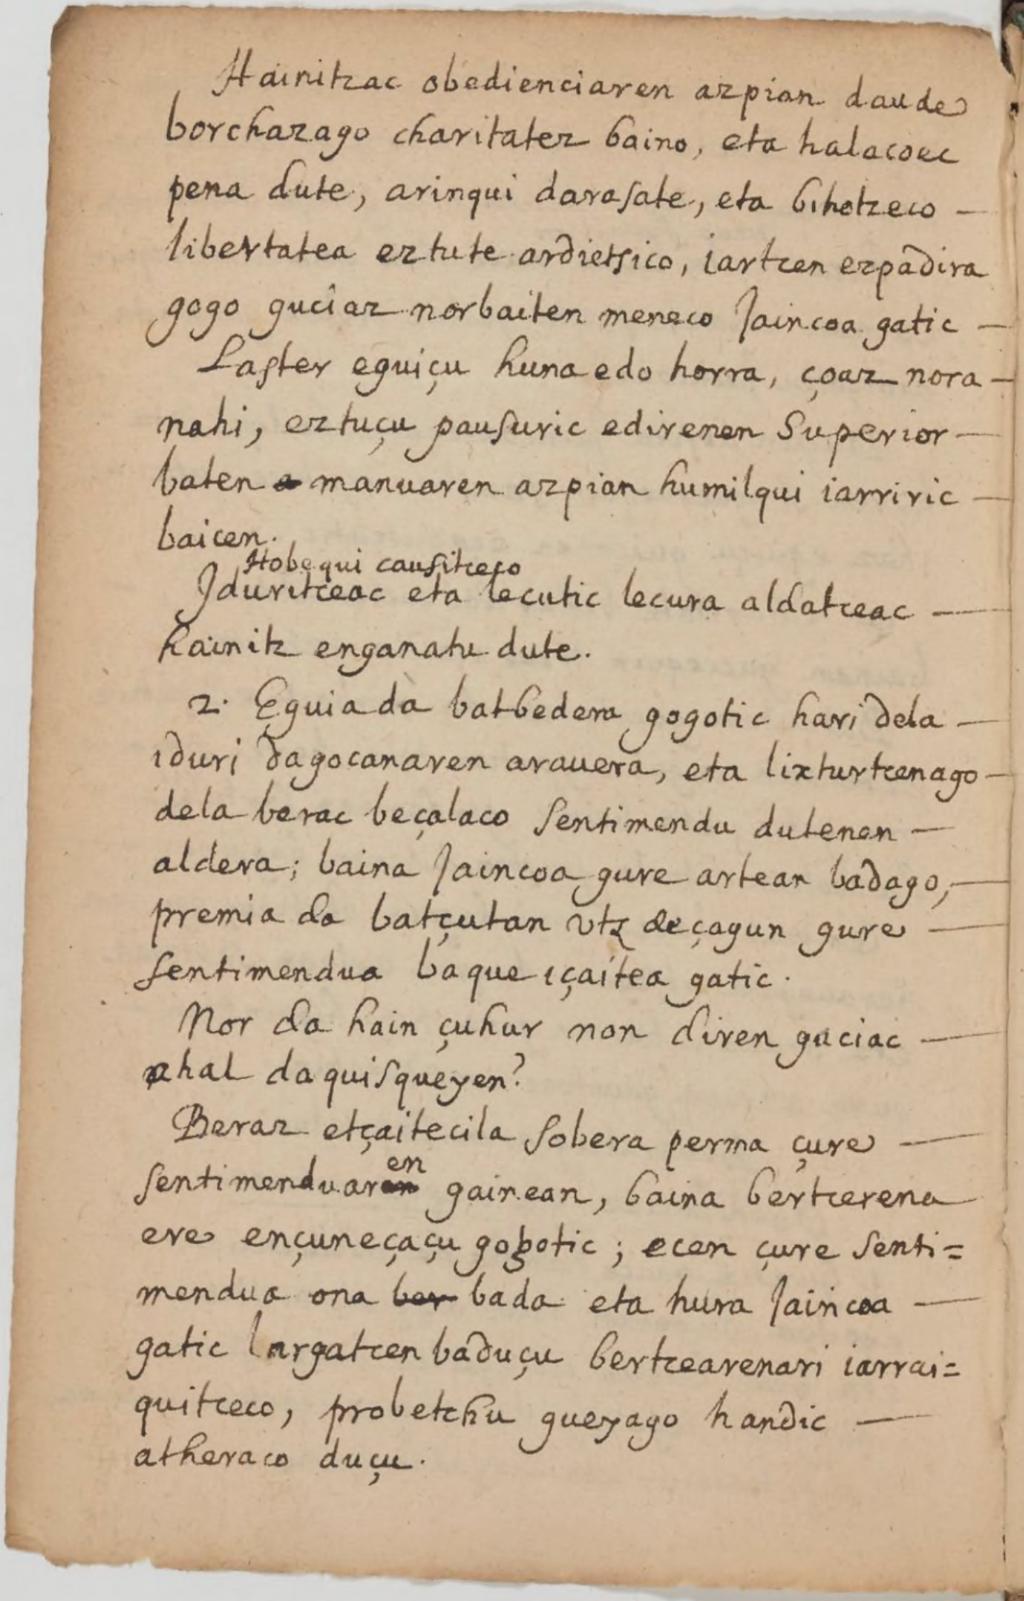 Hainitzac obedienciaren azpian daude
borchazago charitatez baino, eta halacoec
pena dute, arinqui daraſate, eta bihotzeco —
libertatea eztute ardietſico, iartcen ezpadira
gogo guciaz norbaiten meneco Jaincoa gatic —
Laſter eguiçu huna edo horra, çoaz nora —
nahi, eztuçu pauſuric edirenen Superior —
baten a manuaren azpian humilqui iarriric —
baicen.
Hobequi cauſitceco
Iduritceac eta lecutic lecura aldatceac —
hainitz enganatu dute.
2. Eguia da batbedera gogotic hari dela —
iduri dagocanaren arauera, eta lixturtcenago —
dela berac beçalaco ſentimendu dutenen —
aldera; baina Jaincoa gure artean badago, —
premia da batçutan utz deçagun gure —
ſentimendua baque içaitea gatic.
Nor da hain çuhur non diren guciac —
ahal daquiſqueyen?
Beraz etçaitecila ſobera perma çure —
en
ſentimenduaren gainean, baina bertcerena
ere ençuneçaçu gogotic; ecen çure ſenti=
mendua ona ber bada eta hura Jaincoa —
gatic largatcen baduçu bertcearenari iarrai=
quitceco, probetchu gueyago handic —
atheraco duçu.